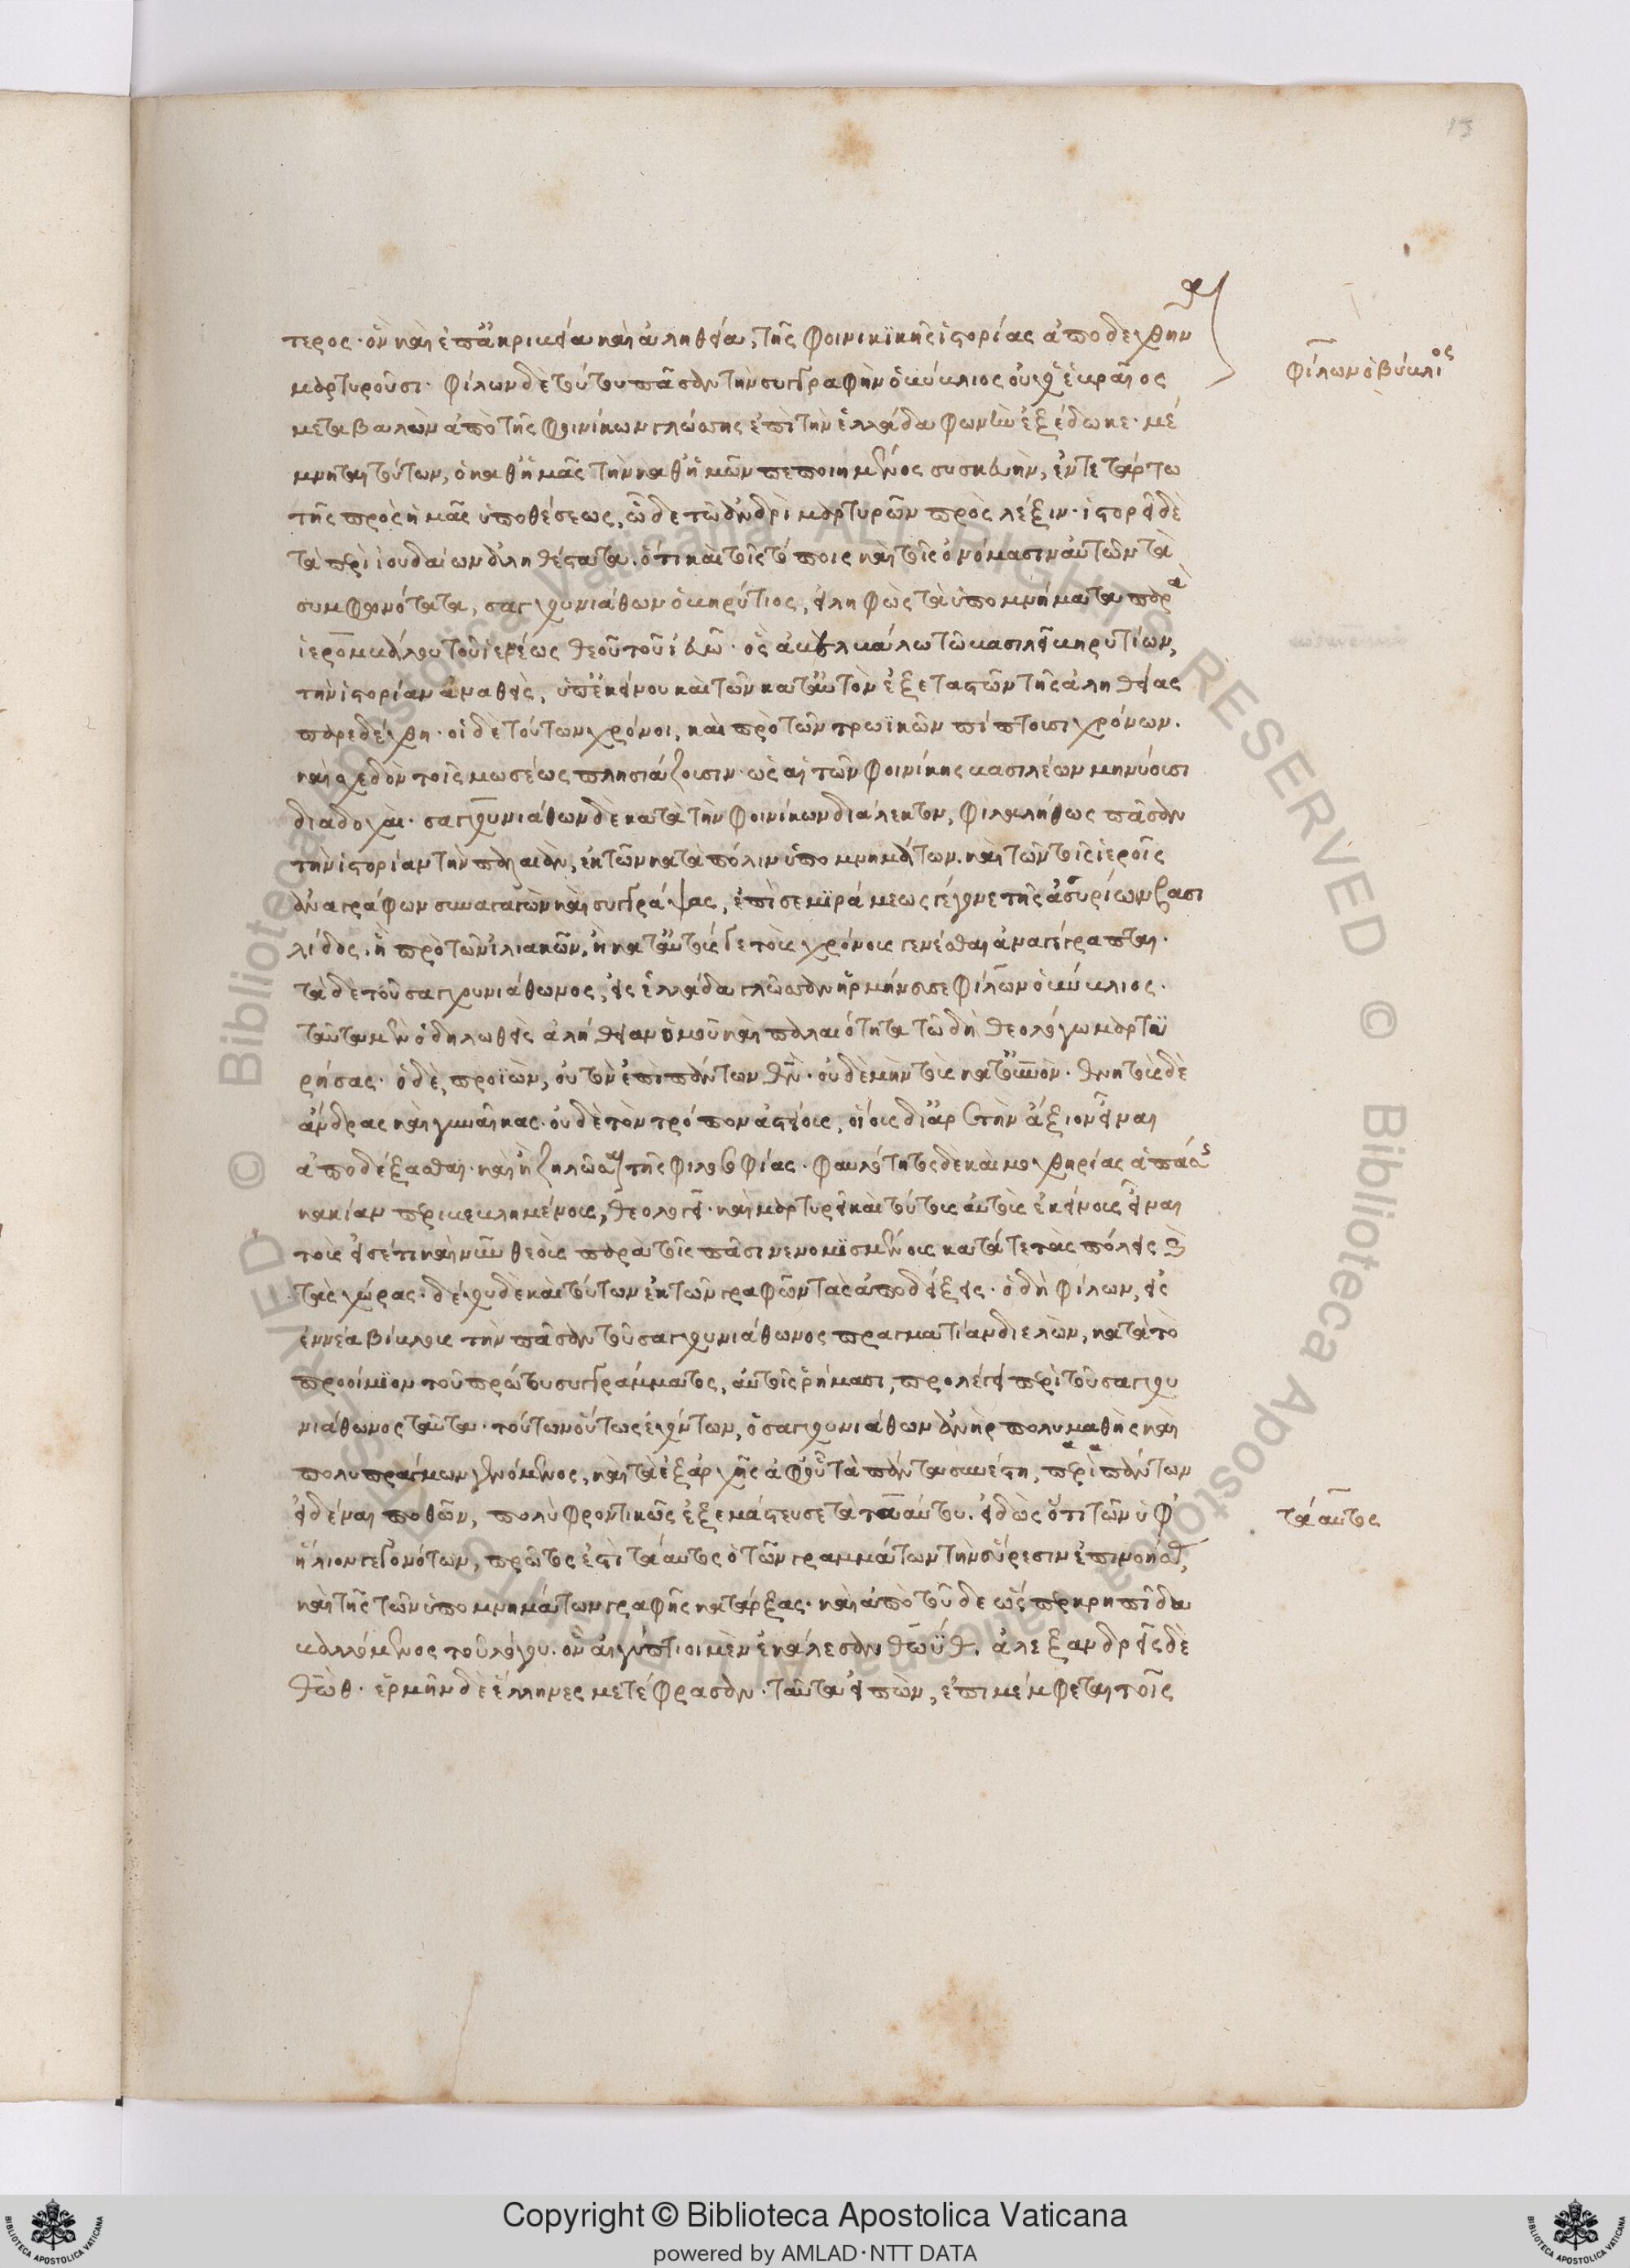 15
τερος· ὃν καὶ ἐπ' ἀκριβεία καὶ ἀληθεία, τῆς φοινικϊκῆς ἱστορίας ἀποδεχθῆν
μαρτυροῦσι· φίλων δὲ τούτου πᾶσαν τὴν συγγραφὴν ὁ βύβλιος οὐχ' ἑβραῖος
φίλων ὁ βύβλιος
μεταβαλὼν ἀπὸ τῆς φοινίκων γλώσσης ἐπὶ τὴν ἑλλάδα φωνὴν ἐξέδωκε· μέ
μνηται τούτων, ὁ καθ' ἡμᾶς τὴν καθ' ἡμῶν πεποιημένος συσκευὴν, ἐν τετάρτω
τῆς πρὸς ἡμᾶς ὑποθέσεως, ὧδε τῶ ἀνδρὶ μαρτυρῶν πρὸς λέξιν· ἱστορεῖ δὲ
τὰ περὶ ἰουδαίων ἀληθέστατα. ὅτι καὶ τοῖς τόποις καὶ τοῖς ὀνόμασιν αὐτῶν τὰ
συμφωνότατα, σαγχουνιάθων ὁ βηρύτιος, εἰληφὼς τὰ ὑπομνήματα παρὰ
ἱερομβάλου τοῦ ἱερέως θεοῦ τοῦ ἰευώ· ὃς ἀβελβάλω τῶ βασιλεῖ βηρυτίων,
τὴν ἱστορίαν ἀναθεὶς, ὑπ' ἐκείνου καὶ τῶν κατ' αὐτὸν ἐξεταστῶν τῆς ἀληθείας
παρεδέχθη· οἱ δὲ τούτων χρόνοι, καὶ πρὸ τῶν τρωϊκῶν πίπτουσι χρόνων.
καὶ σχεδὸν τοῖς μωσέως πλησιάζουσιν· ὡς αἱ τῶν φοινίκης βασιλέων μηνύουσι
διαδοχαὶ· σαγχουνιάθων δὲ κατὰ τὴν φοινίκων διάλεκτον, φιλαλήθως πᾶσαν
τὴν ἱστορίαν τὴν παλαιὰν, ἐκ τῶν κατὰ πόλιν ὑπομνημάτων. καὶ τῶν τοῖς ἱεροῖς
ἀναγράφων συναγαγὼν καὶ συγγράψας, ἐπὶ σεμϊράμεως γέγονε τῆς ἀσσυρίων βασι
λίδος. ἣ πρὸ τῶν ἰλιακῶν, ἢ κατ' αὐτούς γε τοὺς χρόνους γενέσθαι ἀναγέγραπται.
τὰ δὲ τοῦ σαγχουνιάθωνος, εἰς ἑλλάδα γλῶσσαν ἡρμήνευσε φίλων ὁ βύβλιος.
ταῦτα μὲν ὁ δηλωθεὶς ἀλήθειαν ὁμοῦ καὶ παλαιότητα τῶ δὴ θεολόγω μαρτϋ
ρήσας· ὁ δὲ, προϊὼν, οὐ τὸν ἐπὶ πάντων θν̄· οὐδὲ μὴν τοὺς κατ' οὐνον· θνητοὺς δὲ
ἄνδρας καὶ γυναῖκας· οὐδὲ τὸν τρόπον ἀστείους, οἵους δι' ἀρετὴν ἄξιον εἶναι
ἀποδέξασθαι· καὶ ἢ ζηλῶσαι τῆς φιλοσοφίας· φαυλότητος δὲ καὶ μοχθηρίας ἁπάσης
κακίαν περιβεβλημένους, θεολογεῖ· καὶ μαρτυρεῖ καὶ τούτους αὐτοὺς ἐκείνους εἶναι
τοὺς εἰσέτι καὶ νῦν θεοὺς παρὰ τοῖς πᾶσι νενομϊσμένους κατά τε τὰς πόλεις καὶ
τὰς χώρας. δέχου δὲ καὶ τούτων ἐκ τῶν γραφῶν τὰς ἀποδείξεις· ὁ δὴ φίλων, εἰς
ἐννέα βίβλους τὴν πᾶσαν τοῦ σαγχουνιάθωνος πραγματίαν διελὼν, κατὰ τὸ
προοίμϊον τοῦ πρώτου συγγράμματος, αὐτοῖς ῥήμασι, προλέγει περὶ τοῦ σαγχου
νιάθωνος ταῦτα· τούτων οὕτως ἐχόντων, ὁ σαγχουνιάθων ἀνὴρ πολυμαθὴς καὶ
πολυπράγμων γενόμενος, καὶ τὰ ἐξ ἀρχῆς ἀφ' οὗ τὰ πάντα συνέστη, περὶ πάντων
εἰδέναι ποθῶν, πολὺ φροντικῶς ἐξεμάστευσε τὰ τααύτου. εἰδὼς ὅτι τῶν ὑφ'
τάαυτος
ἥλιον γεγονότων, πρῶτος ἐστὶ τάαυτος ὁ τῶν γραμμάτων τὴν εὕρεσιν ἐπινοήσας,
καὶ τῆς τῶν ὑπομνημάτων γραφῆς κατάρξας· καὶ ἀπὸ τοῦδε ὥσπερ κρηπίδα
βαλλόμενος τοῦ λόγου. ὃν αἰγύπτιοι μὲν ἐκάλεσαν θωϋθ. ἀλεξανδρεῖς δὲ
θῶθ· ἑρμῆν δὲ ἕλληνες μετέφρασαν· ταῦτα εἰπὼν, ἐπιμέμφεται τοῖς
Copyright © Biblioteca Apostolica Vaticana
powered by AMLAD·NTT DATA